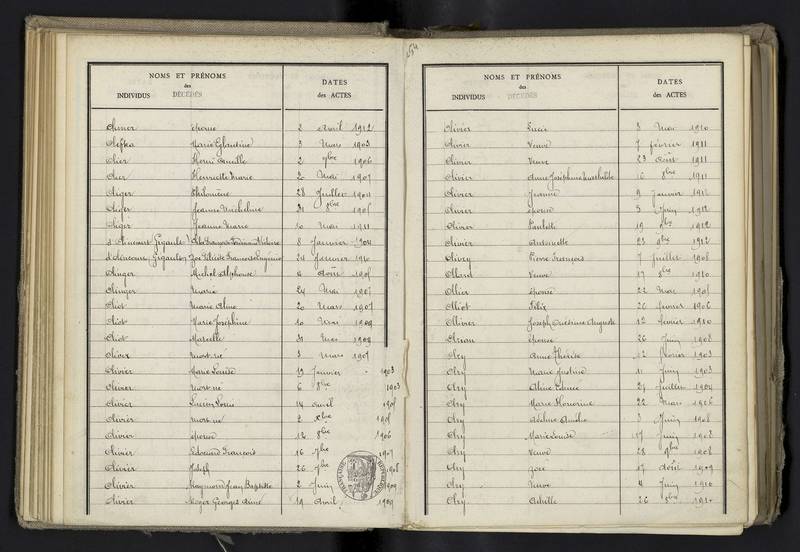 NOMS ET PRÉNOMS
des
INDIVIDUS DÉCÉDÉS
DATES
des ACTES
épouse 2 Avril 1912
Marie Eglantine 3 Mars 1903
Henri Camille 2 9bre 1906
Henriette Marie 20 Mai 1907
Philomène 28 Juillet 1904
Jeanne Micheline 31 8bre 1905
Jeanne Marie 10 Mai 1911
8 Janvier 1904
24 Janvier 1910
Michel Alphonse 4 Août 1905
Marie 24 Mai 1907
Marie Aline 20 Mars 1907
Marie Joséphine 10 Mai 1909
Marcelle 31 Mai 1909
Olivier mort-né 3 Mars 1907
Olivier Marie Louise 19 Janvier 1903
Olivier mort-né 6 8bre 1903
Olivier Lucien Louis 14 avril 1905
Olivier mort-né 2 xbre 1905
Olivier épouse 12 8bre 1906
Olivier Edouard François 16 9bre 1907
Olivier Joseph 26 9bre 1908
Olivier Raymond Jean Baptiste 2 Juin 1909
Olivier Roger Georges Aimé 19 Avril 1909
RÉPUBLIQUE FRANÇAISE
NOMS ET PRÉNOMS
des
INDIVIDUS DÉCÉDÉS
DATES
des ACTES
Olivier Lucie 3 Mai 1910
Olivier Veuve 7 février 1911
Olivier Veuve 23 Août 1911
Olivier Anne Joséphine 16 8bre 1911
Olivier Jeanne 9 Janvier 1912
Olivier épouse 3 Juin 1912
Olivier Paulette 19 9bre 1912
Olivier Antoinette 23 9bre 1912
Olivry Pierre François 7 Juillet 1908
Ollard Veuve 17 8bre 1910
Ollier épouse 22 Mai 1905
Olliot Félix 26 février 1906
Ollivier Joseph Auguste 12 février 1910
épouse 26 Juin 1908
Olry Anne Thérèse 12 février 1903
Olry Marie Justine 11 Juin 1903
Olry Aline Edmée 21 Juillet 1904
Olry Marie Honorine 22 Mars 1906
Olry Adeline Amélie 3 Juin 1908
Olry Marie Louise 17 Juin 1908
Olry Veuve 28 9bre 1908
Olry Zoée 17 Août 1909
Olry Veuve 4 Juin 1910
Olry Achille 26 8bre 1910